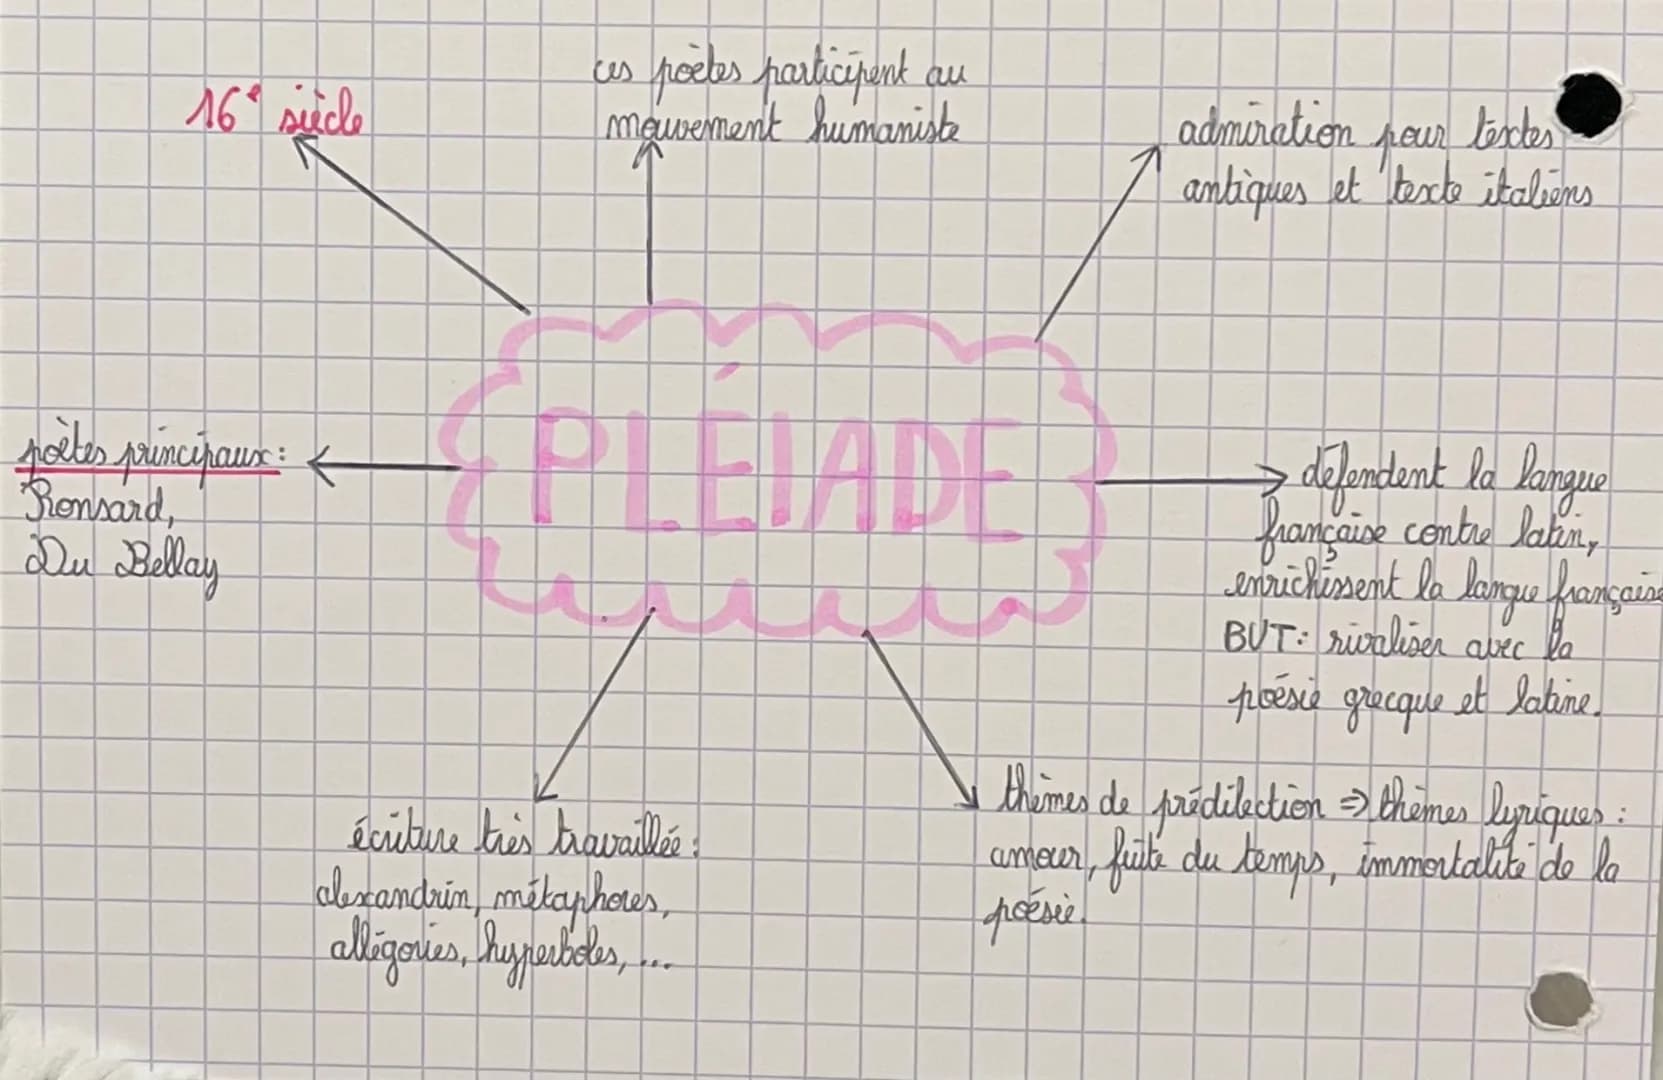 16e siècle
ces poètes participent au
mouvement humaniste
admiration pour textes
antiques et texte italiens
PLÉIADE
poètes principaux:
Ronsard,
Du Bellay
défendent la langue
française contre latin,
enrichissent la langue française
BUT: rivaliser avec la
poésie grecque et latine.
écriture très travaillée:
alexandrin, métaphores,
allégories, hyperboles, ...
thèmes de prédilection => thèmes lyriques:
amour, fuite du temps, immortalité de la
poésie.